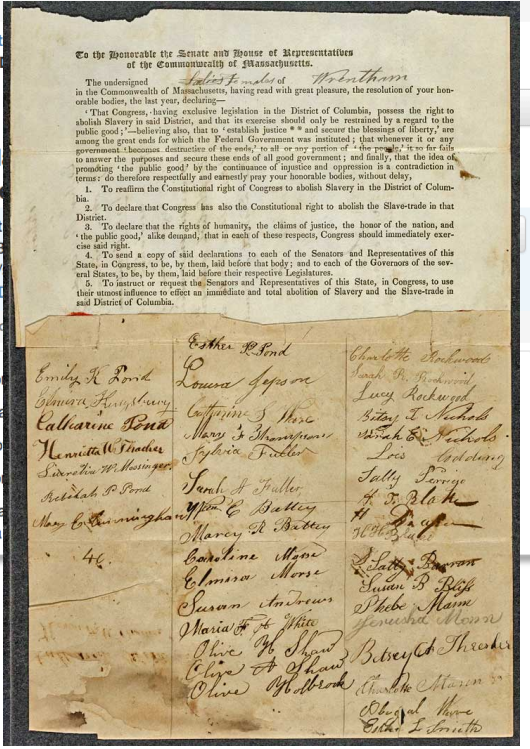 To the Honorable the Senate and House of Representatives
of the Commonwealth of Massachusetts.
The undersigned Ladies females of Wrentham
in the Commonwealth of Massachusetts, having read with great pleasure, the resolution of your hon-
orable bodies, the last year, declaring—
'That Congress, having exclusive legislation in the District of Columbia, possess the right to
abolish Slavery in said District, and that its exercise should only be restrained by a regard to the
public good;'—believing also, that to 'establish justice * * and secure the blessings of liberty,' are
among the great ends for which the Federal Government was instituted; that whenever it or any
government 'becomes destructive of the ends,' to all or any portion of 'the people,' it so far fails
to answer the purposes and secure these ends of all good government; and finally, that the idea of
promoting 'the public good' by the continuance of injustice and oppression is a contradiction in
terms: do therefore respectfully and earnestly pray your honorable bodies, without delay,
1. To reaffirm the Constitutional right of Congress to abolish Slavery in the District of Colum-
bia.
2. To declare that Congress has also the Constitutional right to abolish the Slave-trade in that
District.
3. To declare that the rights of humanity, the claims of justice, the honor of the nation, and
'the public good,' alike demand, that in each of these respects, Congress should immediately exer-
cise said right.
4. To send a copy of said declarations to each of the Senators and Representatives of this
State, in Congress, to be, by them, laid before that body; and to each of the Governors of the sev-
eral States, to be, by them, laid before their respective Legislatures.
5. To instruct or request the Senators and Representatives of this State, in Congress, to use
their utmost influence to effect an immediate and total abolition of Slavery and the Slave-trade in
said District of Columbia.
Emily R Pond
Elmira Kingsbury
Catharine Pond
Henrietta W Thacher
W. Messinger
Bethiah P Pond
Mary C Cunningham
46.
Esther R Pond
Louisa Jepson
Catharine S
Mary F Thompson
Sylvia Fuller
Sarah A Fuller
C Battey
Marcy R Battey
Caroline Morse
Elmira Morse
Susan Andrews
Maria F. A White
Olive H Shaw
Eliza A Shaw
Olive Holbrook
Charlotte Rockwood
Sarah R. Rockwood
Lucy Rockwood
Betsy T Nichols
Sarah E Nichols
Lois Golding
Sally
Blake
H
H H Blake
Sally
Susan B Bliss
Phebe Mann
Jerusha Mann
Betsey A Thresher
Charlotte Mann
Abigail
Esther L Smith